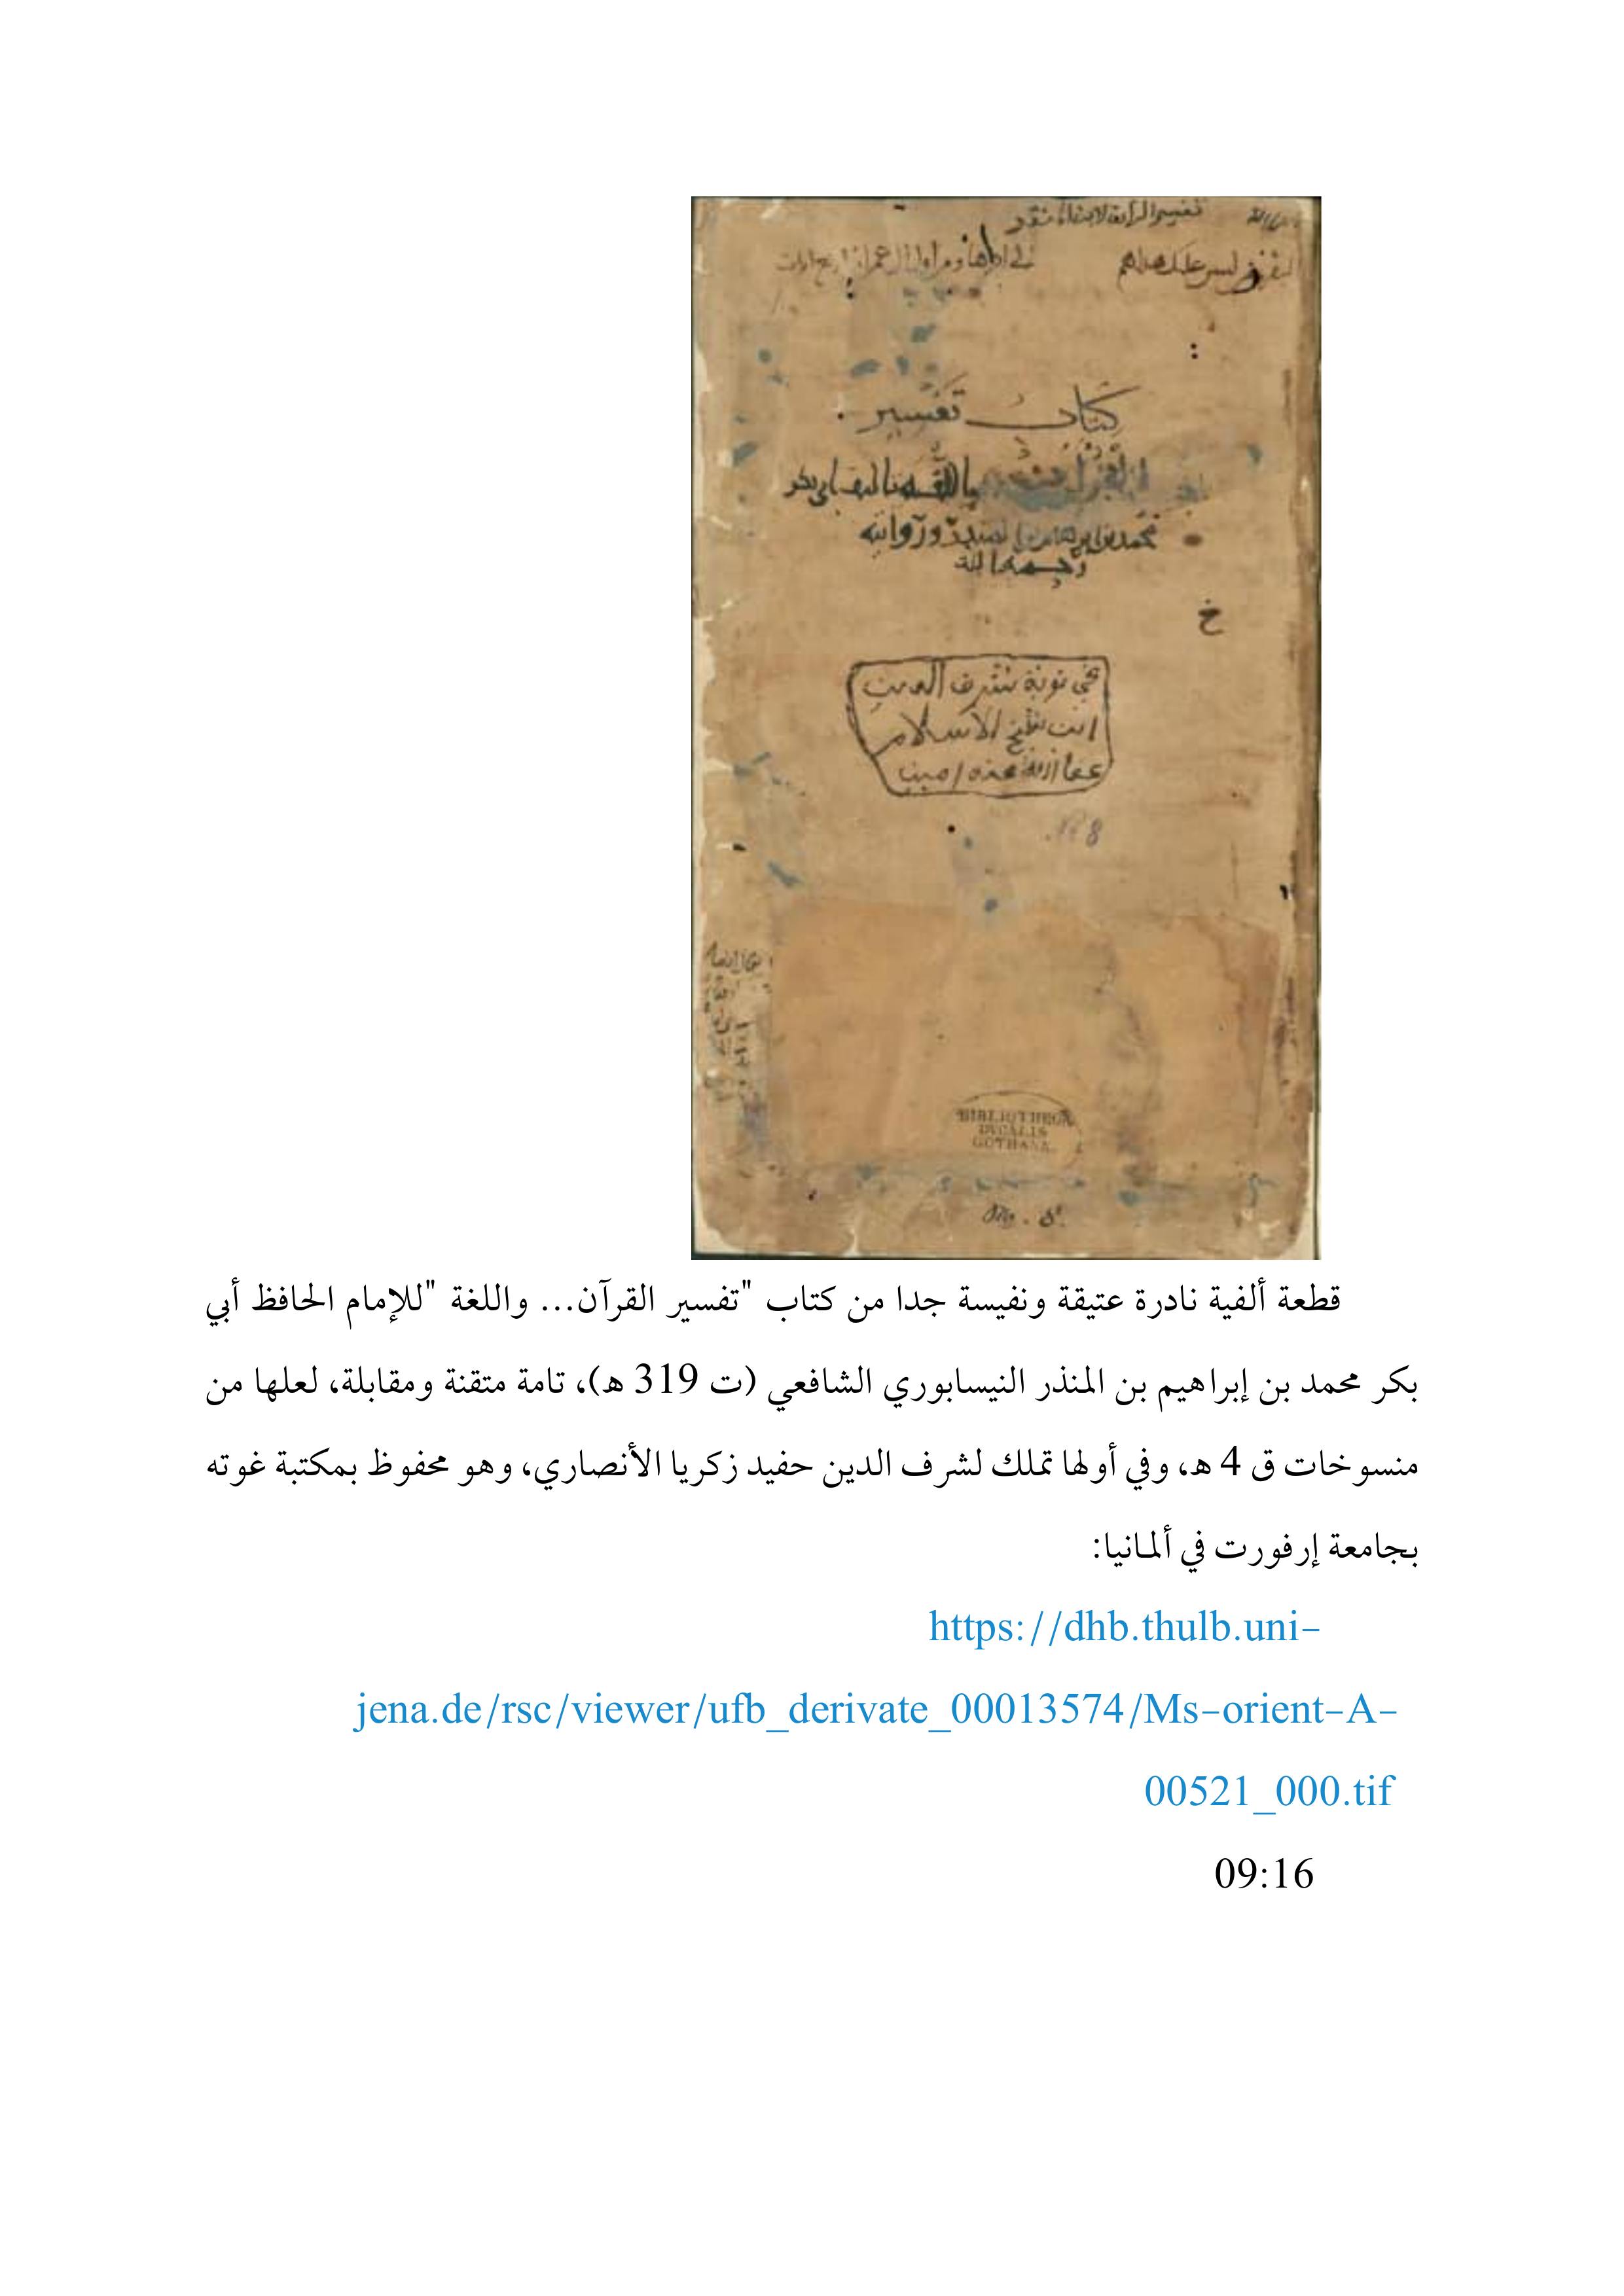 كتاب تفسير
محمد بن إبراهيم بن المنذر وروايته
رحمه الله
خ
في نوبة شرف الدين
ابن شيخ الاسلام
عفا الله عنه امين
BIBLIOTHECA
DVCALIS
GOTHANA.
قطعة ألفية نادرة عتيقة ونفيسة جدا من كتاب "تفسير القرآن... واللغة "للإمام الحافظ أبي
بكر محمد بن إبراهيم بن المنذر النيسابوري الشافعي (ت 319 هـ)، تامة متقنة ومقابلة، لعلها من
منسوخات ق 4 هـ، وفي أولها تملك لشرف الدين حفيد زكريا الأنصاري، وهو محفوظ بمكتبة غوته
بجامعة إرفورت في ألمانيا:
https://dhb.thulb.uni-
jena.de/rsc/viewer/ufb_derivate_00013574/Ms-orient-A-
00521_000.tif
09:16